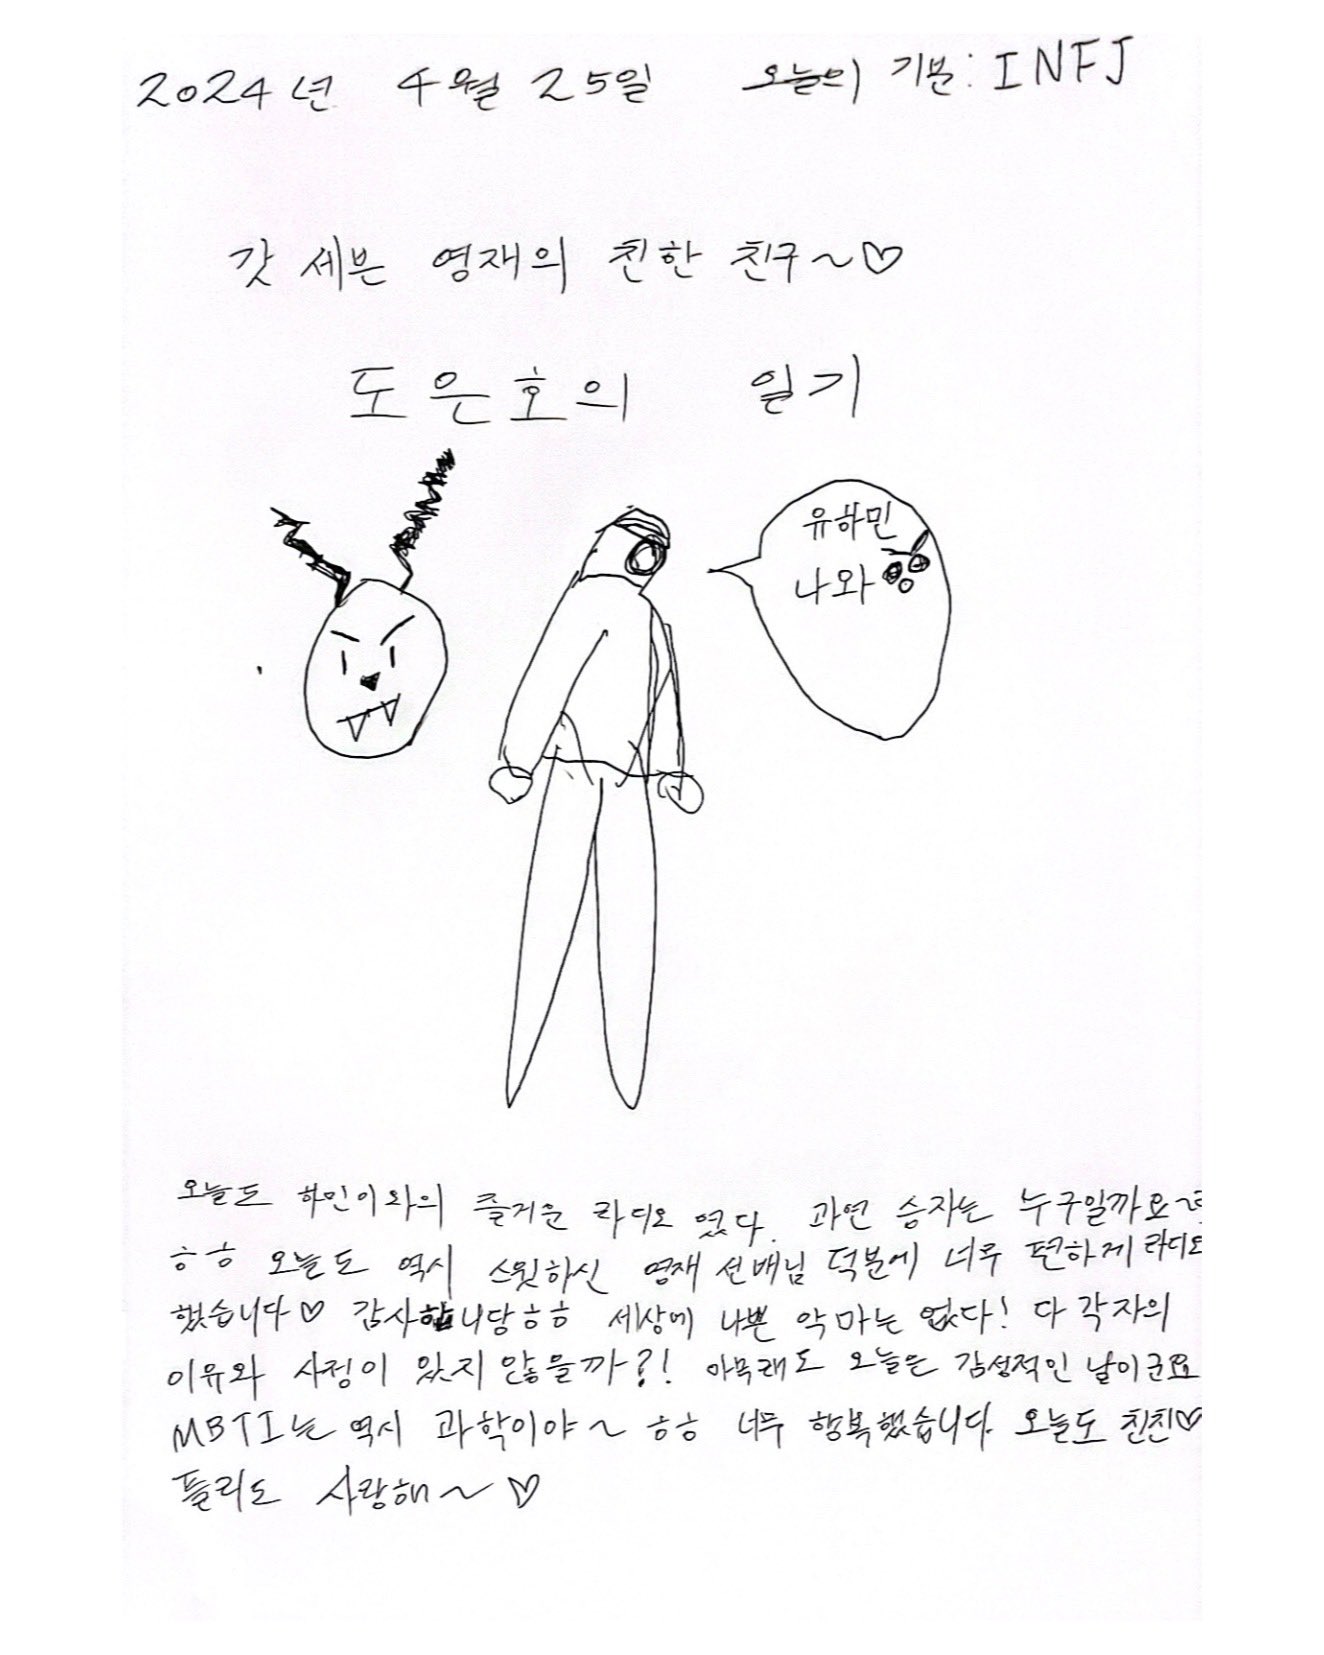 2024년 4월 25일 오늘의 기분: INFJ
갓 세븐 영재의 친한 친구~♡
도은호의 일기
유하민
나와
오늘도 하민이와의 즐거운 라디오 였다. 과연 승자는 누구일까요~
ㅎㅎ 오늘도 역시 스윗하신 영재 선배님 덕분에 너무 편하게 라디오
했습니다♡ 감사합니당ㅎㅎ 세상에 나쁜 악마는 없다! 다 각자의
이유와 사정이 있지 않을까?! 아무래도 오늘은 감성적인 날이군요
MBTI는 역시 과학이야~ ㅎㅎ 너무 행복했습니다. 오늘도 친친♡
플리도 사랑해~♡